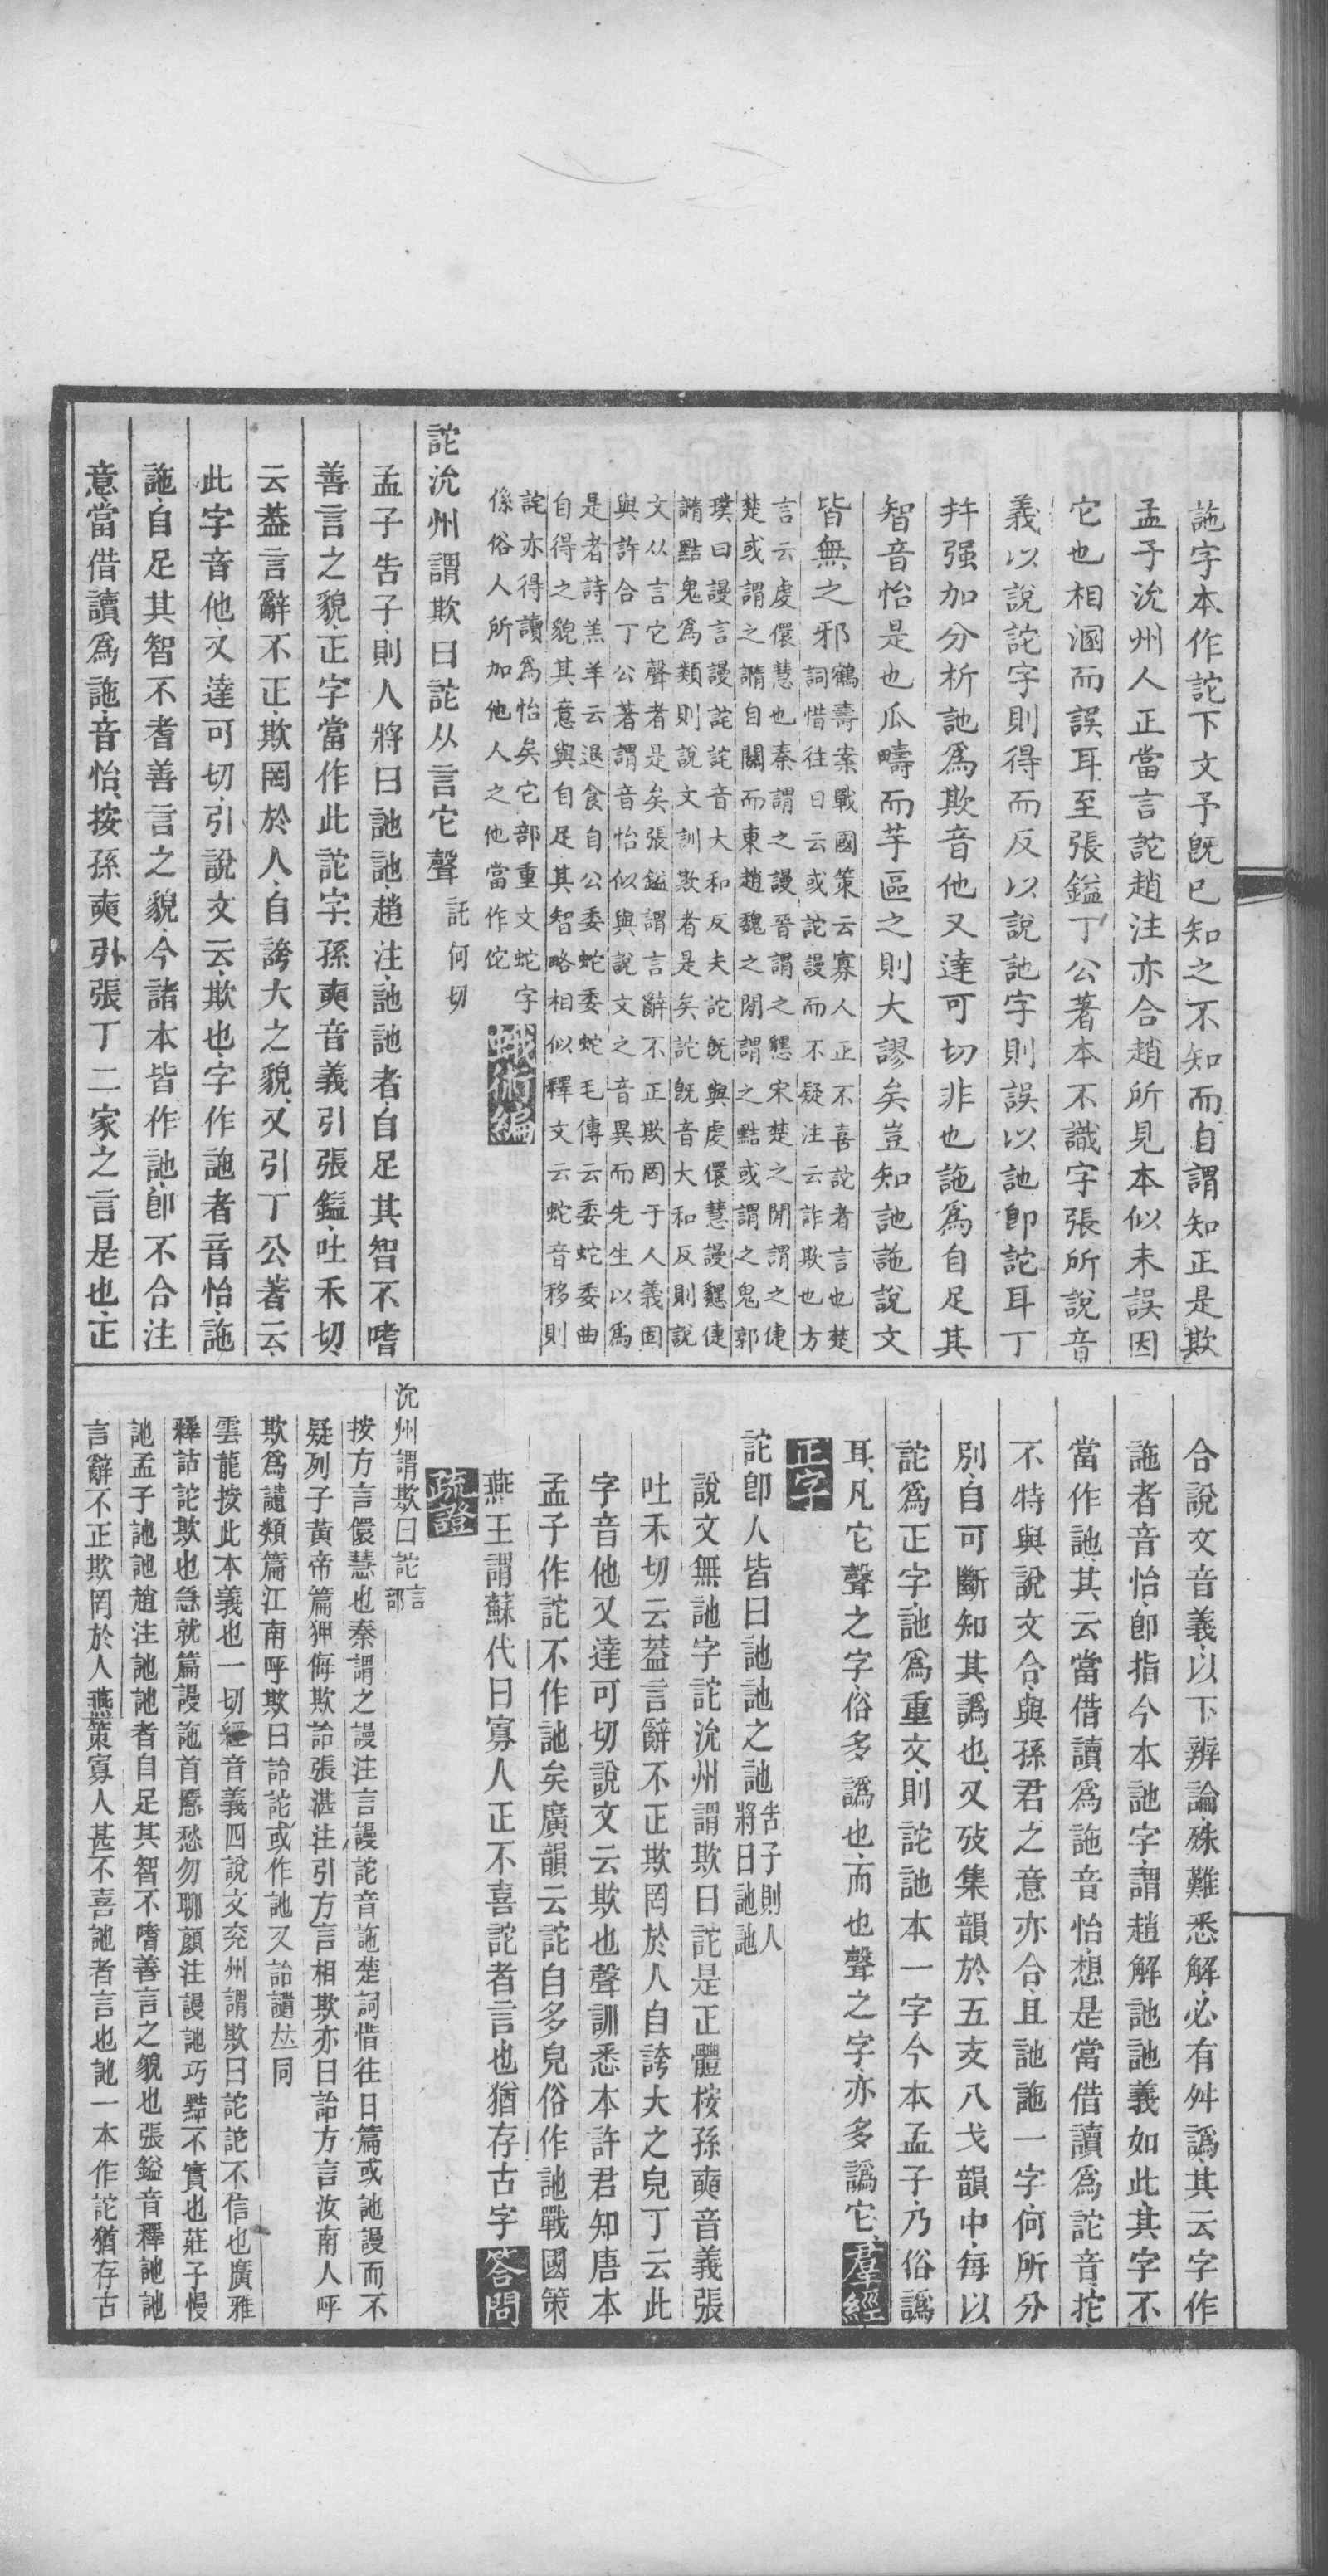 訑字本作詑下文予旣已知之不知而自謂知正是欺
孟子沇州人正當言詑趙注亦合趙所見本似未誤因
它也相溷而誤耳至張鎰丁公著本不識字張所說音
義以說詑字則得而反以說訑字則誤以訑卽詑耳丁
幷强加分析訑爲欺音他又達可切非也訑爲自足其
智音怡是也瓜疇而芋區之則大謬矣豈知訑訑說文
皆無之邪
鶴壽案戰國策云寡人正不喜詑者言也楚
詞惜往日云或詑謾而不疑注云詐欺也方
言云虔儇慧也秦謂之謾晉謂之㦟宋楚之閒謂之倢
楚或謂之䜏自關而東趙魏之閒謂之黠或謂之鬼郭
璞曰謾言謾詑詑音大和反夫詑旣與虔儇慧謾㦟倢
䜏黠鬼爲類則說文訓欺者是矣詑旣音大和反則說
文从言它聲者是矣張鎰謂言辭不正欺罔于人義固
與許合丁公著謂音怡似與說文之音異而先生以爲
是者詩羔羊云退食自公委蛇委蛇毛傳云委蛇委曲
自得之貌其意與自足其智略相似釋文云蛇音移則
詑亦得讀爲怡矣它部重文蛇字
係俗人所加他人之他當作佗
蛾術編
詑沇州謂欺曰詑从言它聲託何切
孟子告子則人將曰訑訑趙注訑訑者自足其智不嗜
善言之貌正字當作此詑字孫奭音義引張鎰吐禾切
云葢言辭不正欺罔於人自誇大之貌又引丁公著云
此字音他又達可切引說文云欺也字作訑者音怡訑
訑自足其智不耆善言之貌今諸本皆作訑卽不合注
意當借讀爲訑音怡按孫奭引張丁二家之言是也正
合說文音義以下辨論殊難悉解必有舛譌其云字作
訑者音怡卽指今本訑字謂趙解訑訑義如此其字不
當作訑其云當借讀爲訑音怡想是當借讀爲詑音拕
不特與說文合與孫君之意亦合且訑訑一字何所分
別自可斷知其譌也又攷集韻於五支八戈韻中每以
詑爲正字訑爲重文則詑訑本一字今本孟子乃俗譌
耳凡它聲之字俗多譌也而也聲之字亦多譌它羣經
正字
詑卽人皆曰訑訑之訑告子則人
將曰訑訑
說文無訑字詑沇州謂欺曰詑是正體桉孫奭音義張
吐禾切云葢言辭不正欺罔於人自誇大之皃丁云此
字音他又達可切說文云欺也聲訓悉本許君知唐本
孟子作詑不作訑矣廣韻云詑自多皃俗作訑戰國策
燕王謂蘇代曰寡人正不喜詑者言也猶存古字答問
疏證
沇州謂欺曰詑言
部
按方言儇慧也秦謂之謾注言謾詑音訑楚詞惜往日篇或訑謾而不
疑列子黃帝篇狎侮欺詒張湛注引方言相欺亦曰詒方言汝南人呼
欺爲讉類篇江南呼欺曰詒詑或作訑又詒讉𠀤同
雲龍按此本義也一切經音義四說文兖州謂欺曰詑詑不信也廣雅
釋詁詑欺也急就篇謾訑首匿愁勿聊顏注謾訑巧黠不實也莊子慢
訑孟子訑訑趙注訑訑者自足其智不嗜善言之貌也張鎰音釋訑訑
言辭不正欺罔於人燕策寡人甚不喜訑者言也訑一本作詑猶存古